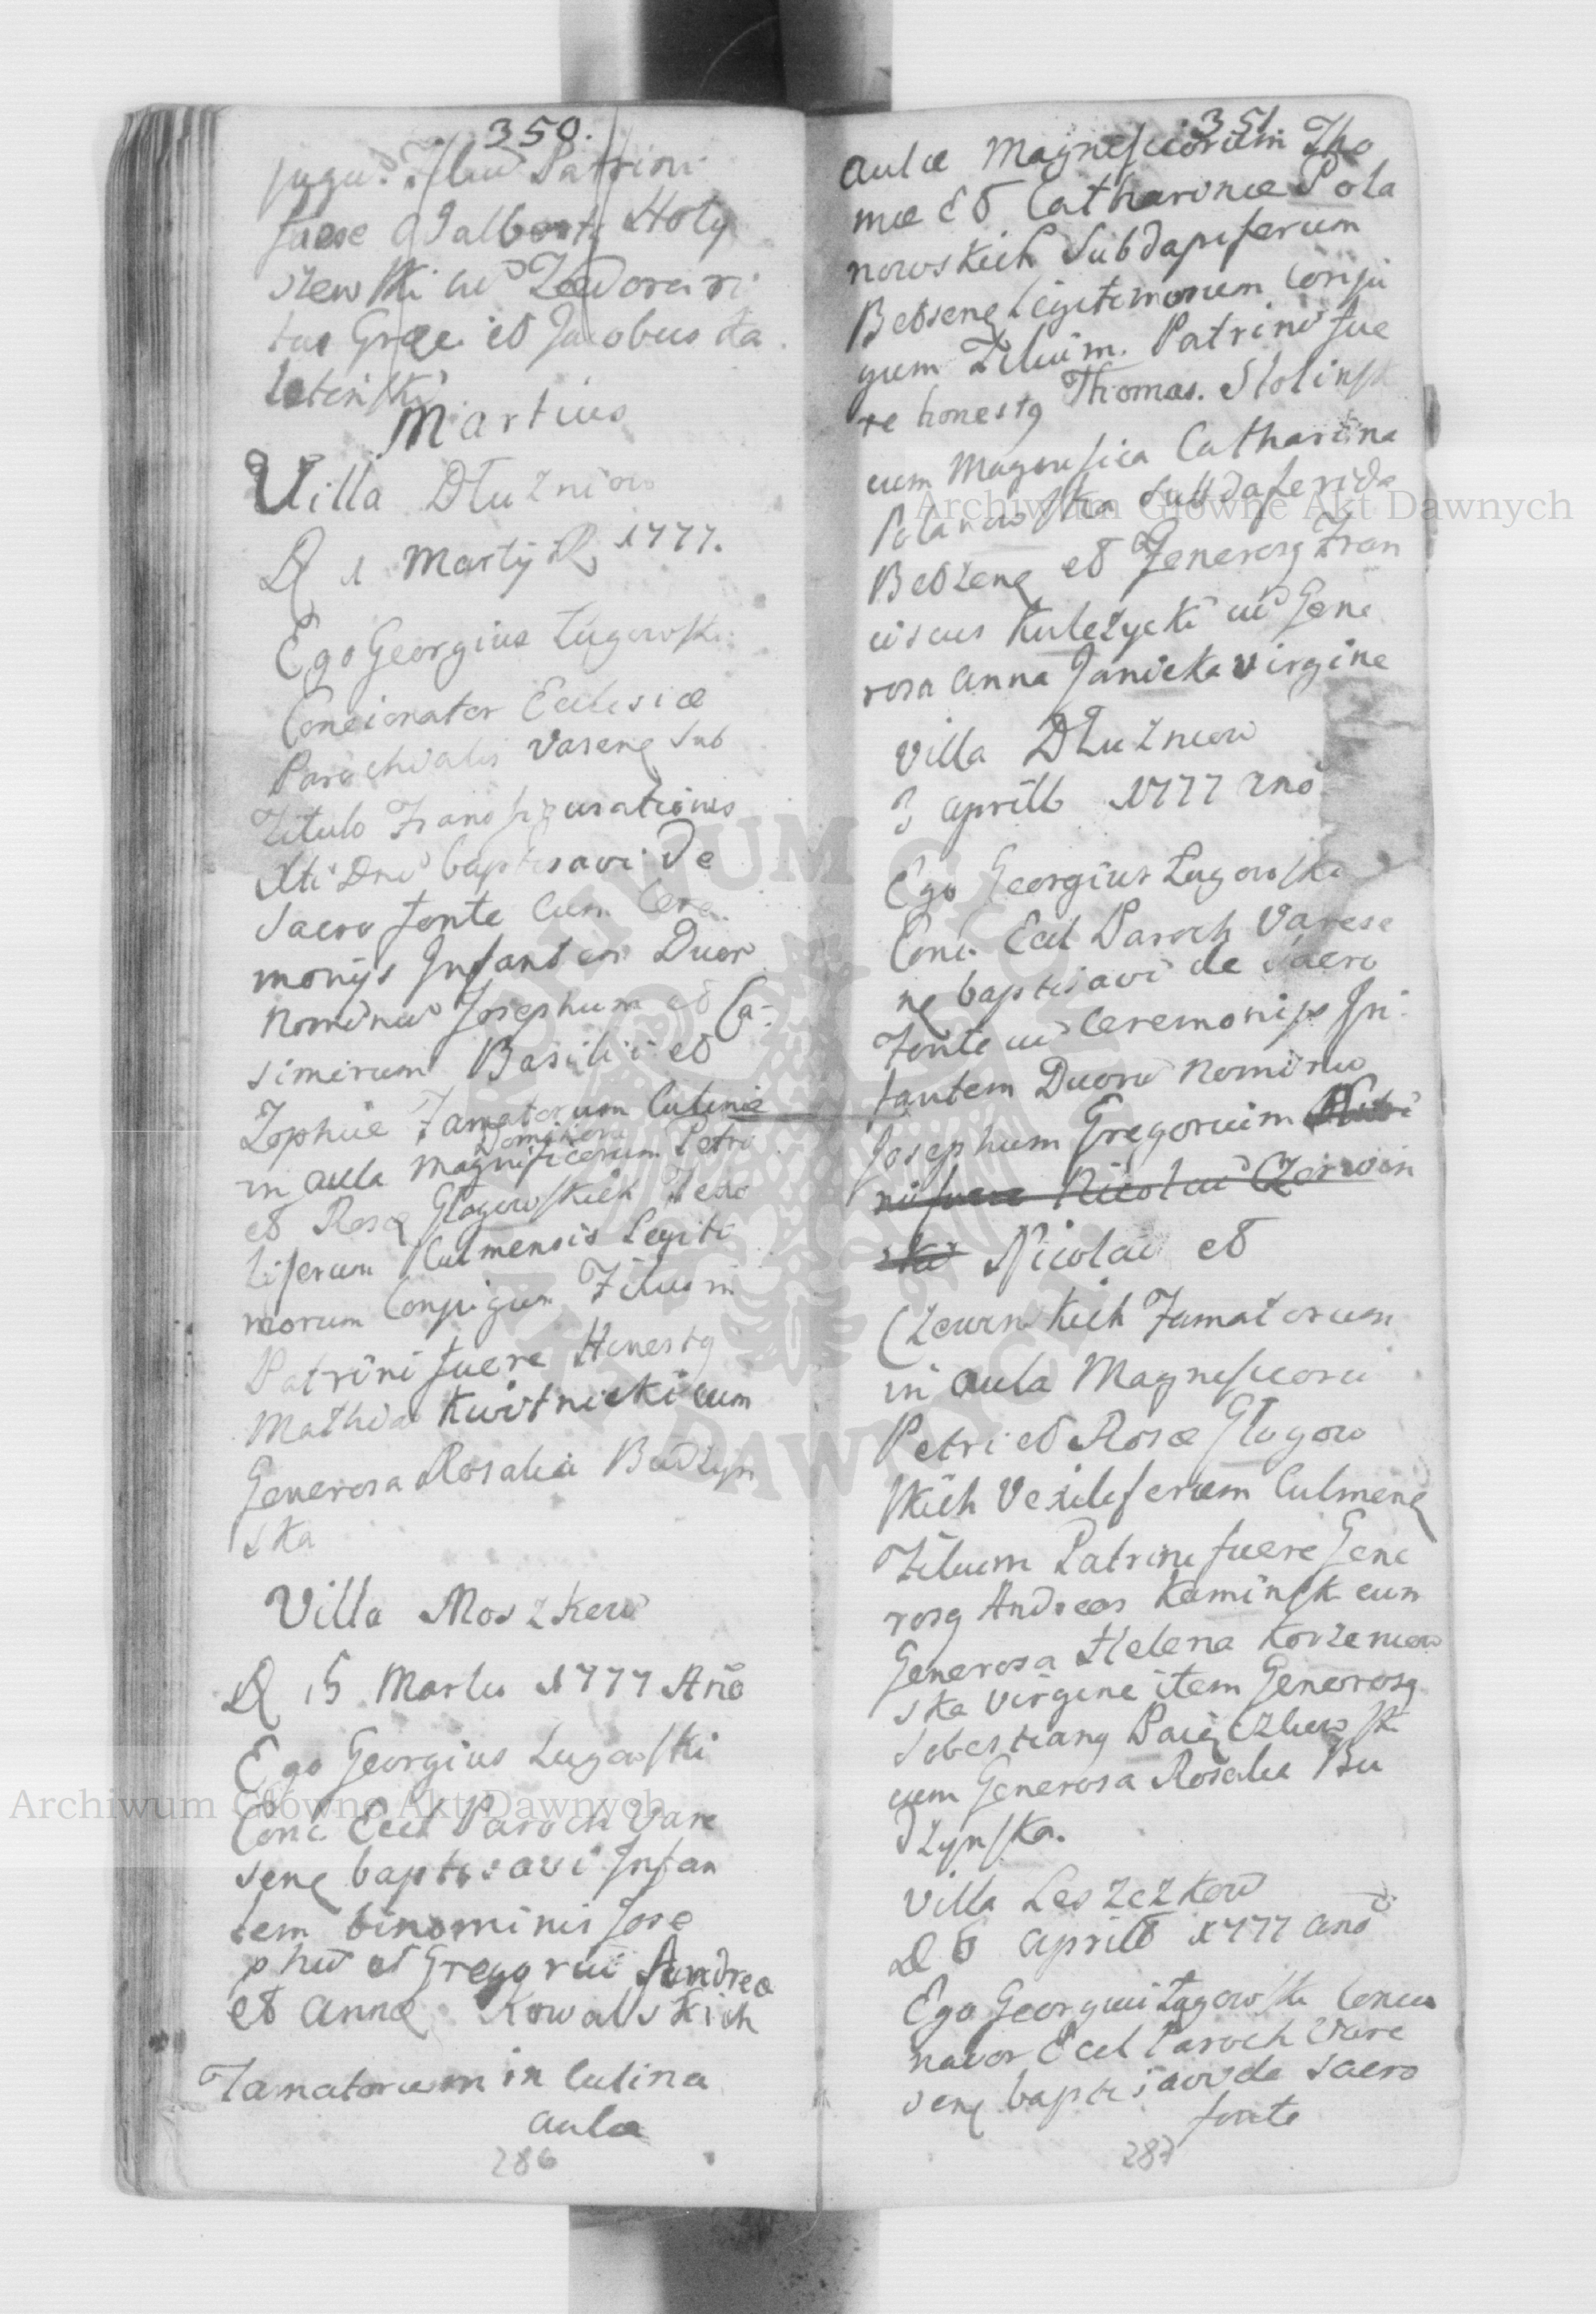 350.
jugu. Filiu Patrini
fuere Adalbertg Hoły
szewski cu Teodora ri
tus Grae. et Jacobus Za
Martius
Villa Dłuzniow
D 1 Martij R, 1777.
Ego Georgius Ługowski
Concionator Ecclesiæ
Parochialis Vareng sub
Titulo Transfigurationis
Xti Dni baptisavi de
Sacro fonte cum Cere
monijs Infantem Duor
Nominu Josephum et Ca-
simirum Basilii et
Zophiæ Famatorum Culinæ
Domikow
in aula Magnificorum Petri
et Rosæ Głogowskich Vexi
liferum Culmensis Legiti
morum Conjugum Filium
Patrini fuere Honestg
Mathia Kwitnicki cum
Generosa Rosalia Budzyn
ska
Villa Moszkow
D 15 Martii 1777 Ano
Ego Georgius Ługowski
Conc Eccl Paroch Vare
seng baptisavi Infan
tem binominis Jose
phu et Gregoriu Andreæ
et Annæ Kowalskich
Famatorum in Culina
aulæ
286
351
aulæ Magnificorum Tho
mæ et Catharinæ Pola
nowskich Subdapiferum
Betseng legitimorum conju
gum Filium. Patrini fue
re honestg Thomas Stolinsk
cum Magnifica Catharina
Polanowska Subdaferida
Betzeng et Generosg Fran
ciscus Kulezycki cu Gene
rosa Anna Janicka virgine
Villa Dłuzniow
3 aprill 1777 Ano
Ego Georgius Ługowski
Conc Eccl Paroch Varese
ng baptisavi de Sacro
Fonte cu Ceremonijs In
fantem Duoru Nominu
Josephum Gregorium Patri
ni fuere Nicolai Czerwin
ski Nicolai et
Czerwinskich Famatorum
in aula Magnificoru
Petri et Rosæ Głogow
skich Vexiliferum Culmeng
Filium Patrini fuere Gene
rosg Andreas Kaminsk cum
Generosa Helena Korzeniow
ska Virgine item Generosg
Sebestiang
cum Generosa Rosalia Bu
dzynska.
Villa Leszczkow
D 6 Aprill 1777 Ano
Ego Georgius Ługowski Concio
nator Eccl Paroch Vare
seng baptisavi de Sacro
fonte
287
Archiwum Główne Akt Dawnych
Archiwum Główne Akt Dawnych
ARCHIWUM GŁÓWNE
AKT DAWNYCH